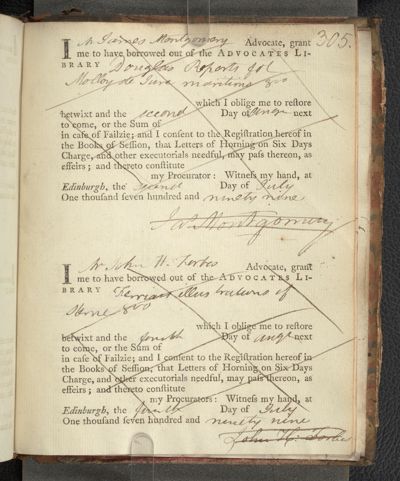 305.
I Mr James Montgomery Advocate, grant
me to have borrowed out of the ADVOCATES LI-
BRARY Douglas Reports fol
Molloy de Jure maritimo 8vo
which I oblige me to reſtore
betwixt and the second Day of next
to come, or the Sum of
in caſe of Failzie; and I conſent to the Regiſtration hereof in
the Books of Seſſion, that Letters of Horning on Six Days
Charge, and other executorials needful, may paſs thereon, as
effeirs; and thereto conſtitute
my Procurator: Witneſs my hand, at
Edinburgh, the Day of July
One thouſand ſeven hundred and ninety nine
Jas Montgomery
I Mr John H. Forbes Advocate, grant
me to have borrowed out of the ADVOCATES LI-
BRARY Ferriar illustrations of
Sterne 8vo
which I oblige me to reſtore
betwixt and the fourth Day of augt next
to come, or the Sum of
in caſe of Failzie; and I conſent to the Regiſtration hereof in
the Books of Seſſion, that Letters of Horning on Six Days
Charge, and other executorials needful, may paſs thereon, as
effeirs; and thereto conſtitute
my Procurators: Witneſs my hand, at
Edinburgh, the fourth Day of July
One thouſand ſeven hundred and ninety nine
John H. Forbes